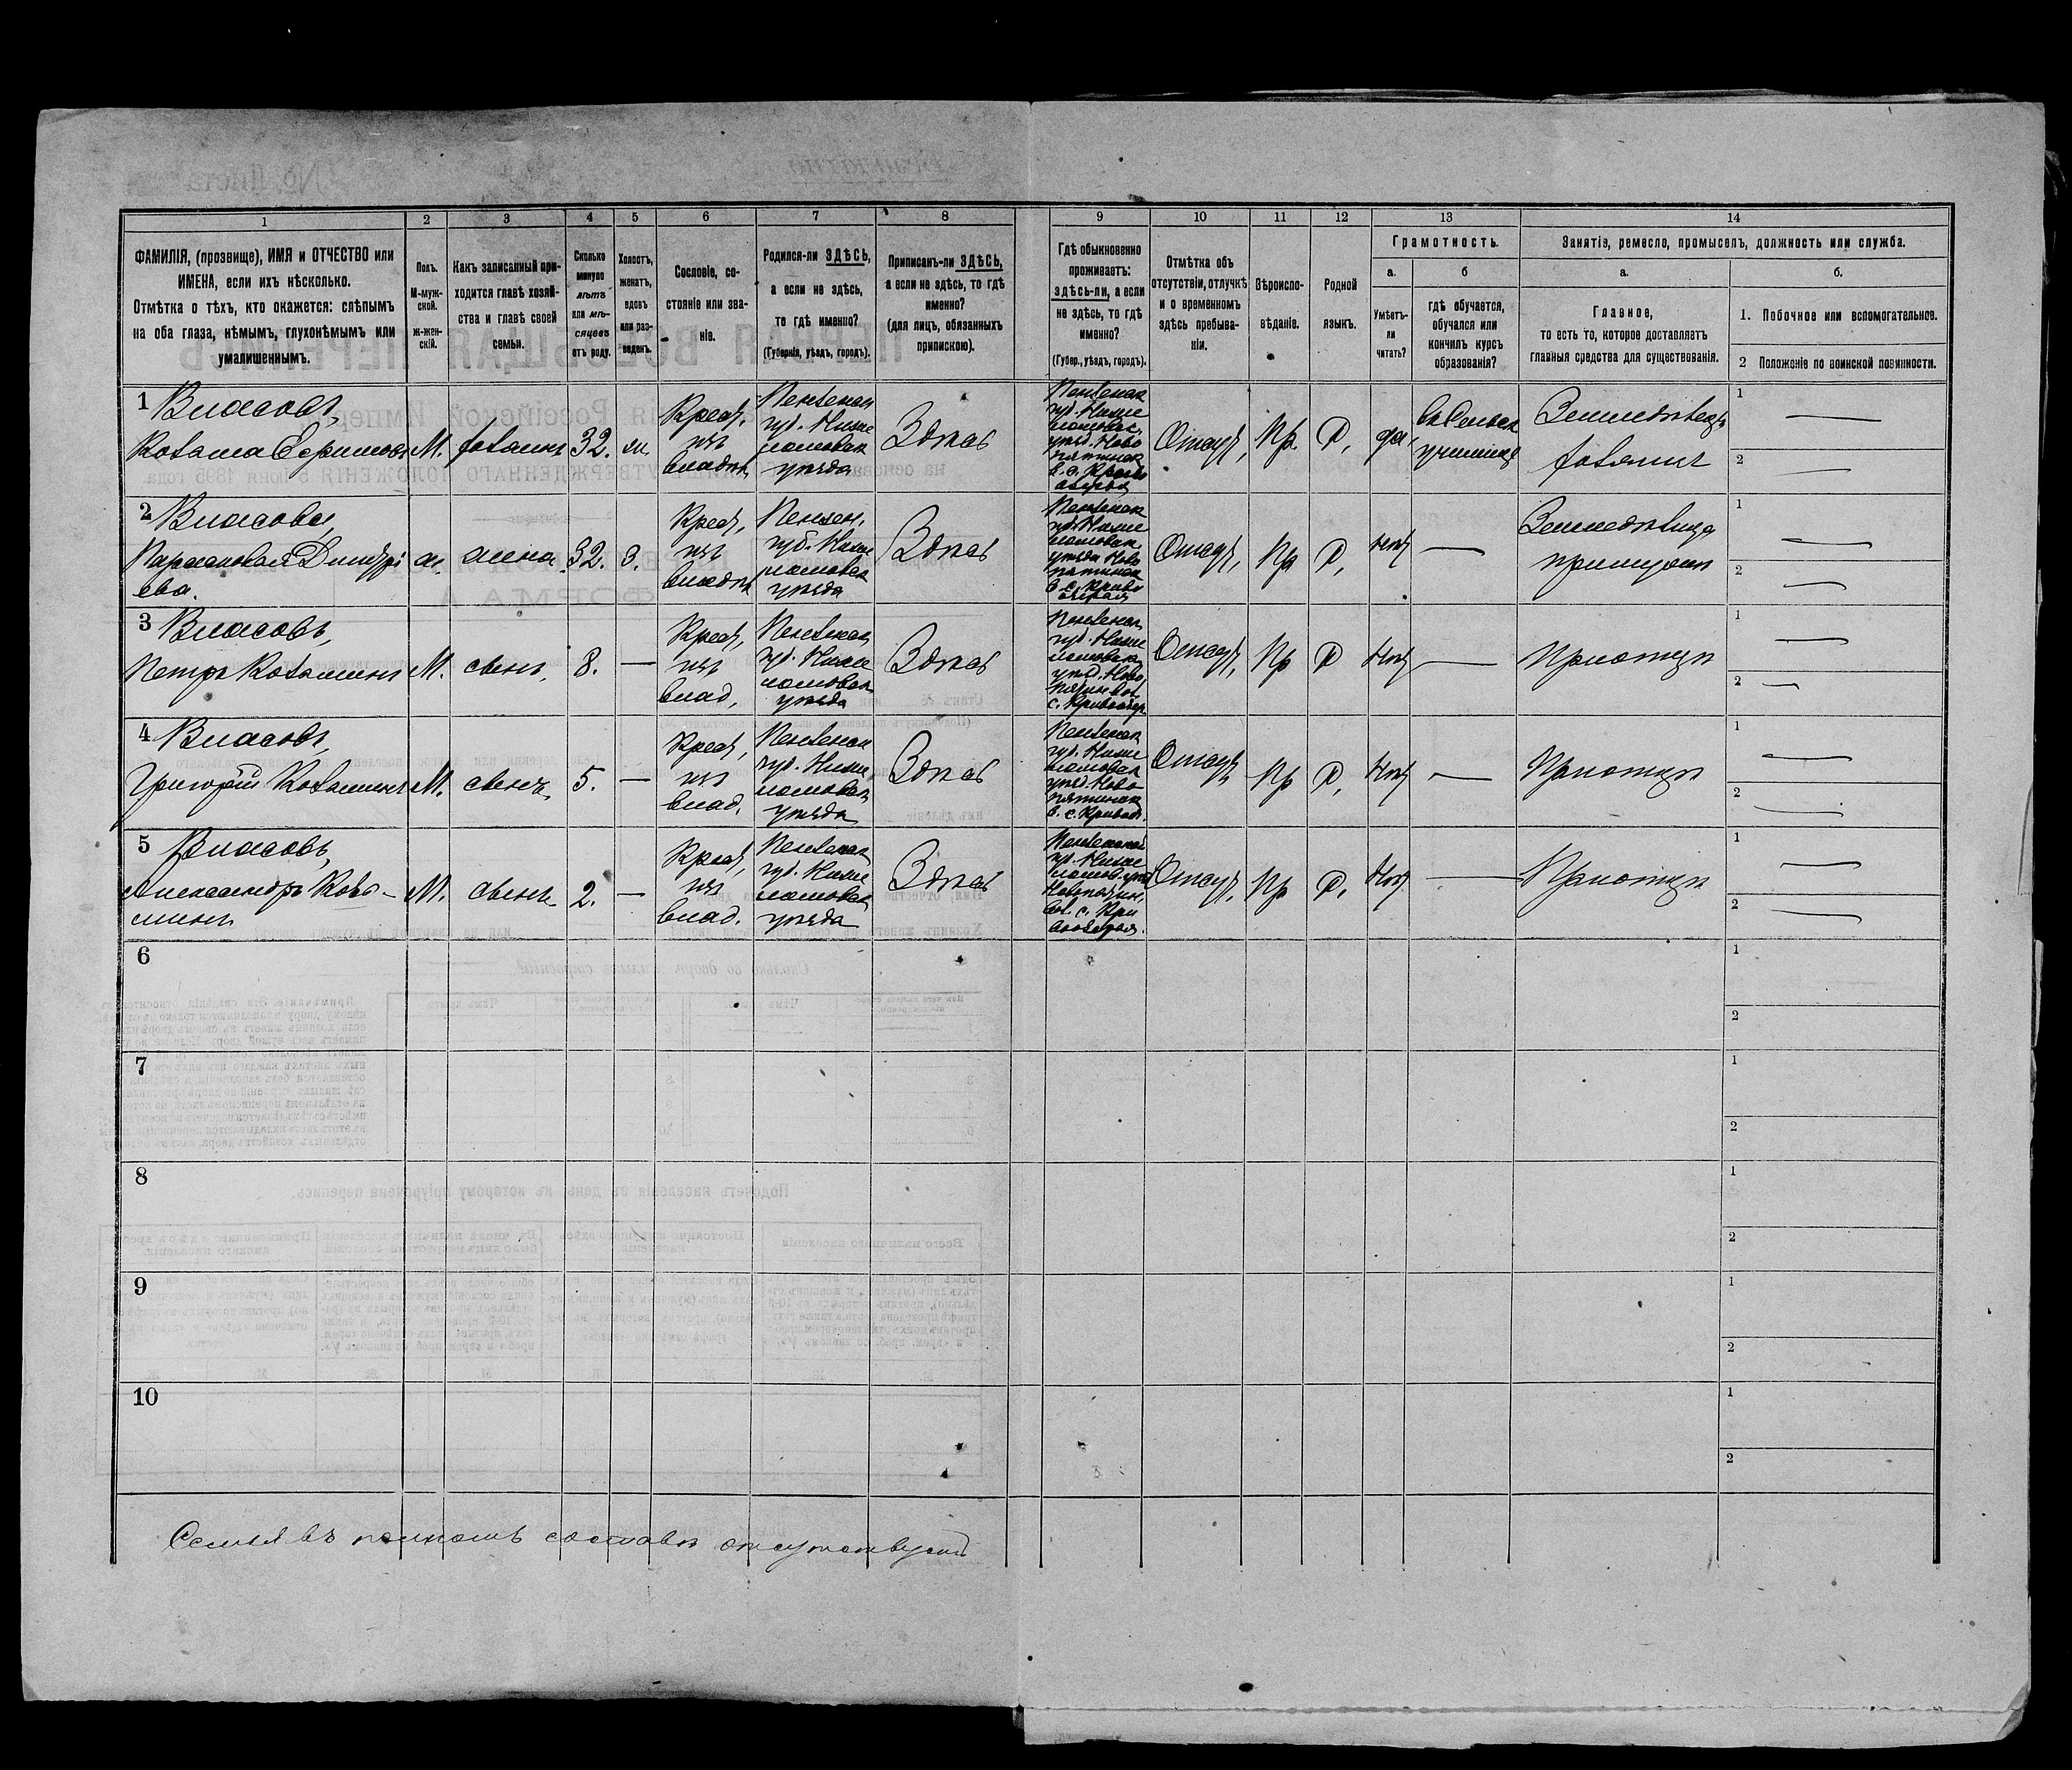 1 2 3 4 5 6 7 8 9 10 11 12 13 14
ФАМИЛІЯ, (прозвище), ИМЯ и ОТЧЕСТВО или
ИМЕНА, если ихъ нѣсколько.
Отмѣтка о тѣхъ, кто окажется: слѣпымъ
на оба глаза, нѣмымъ, глухонѣмымъ или
умалишеннымъ.
Полъ.
М-муж-
ской.
ж-жен-
скій.
Какъ записанный при-
ходится главѣ хозяй-
ства и главѣ своей
семьи.
Сколько
минуло
лѣтъ
или мѣ-
сяцевъ
отъ роду.
Холостъ,
женатъ,
вдовъ
или раз-
веденъ.
Сословіе, со-
стояніе или зва-
ніе.
Родился-ли ЗДѢСЬ,
а если не здѣсь,
то гдѣ именно?
(Губернія, уѣздъ, городъ).
Приписанъ-ли ЗДѢСЬ,
а если не здѣсь, то гдѣ
именно?
(для лицъ, обязанныхъ
припискою).
Гдѣ обыкновенно
проживаетъ:
здѣсь-ли, а если
не здѣсь, то гдѣ
именно?
(Губер., уѣздъ, городъ).
Отмѣтка объ
отсутствіи, отлучкѣ
и о временномъ
здѣсь пребыва-
ніи.
Вѣроиспо-
вѣданіе.
Родной
языкъ.
Грамотность.
а.
Умѣетъ-
ли
читать?
б
гдѣ обучается,
обучался или
кончилъ курсъ
образованія?
Занятіе, ремесло, промыселъ, должность или служба.
а.
Главное,
то есть то, которое доставляетъ
главныя средства для существованія.
б.
1. Побочное или вспомогательное.
2 Положеніе по воинской повинности.
1 Власовъ,
Козьма Ефимовъ М. хозяинъ 32. ж.
Крест.
изъ
владѣ
Пензенск
губ. Ниже
ломовск
уѣзда
Здѣсь
Пензенск
губ. Ниже
ломовск,
уѣзд. Ново
пятинск
в. с.
Отсут, Пр. Р, да,
въ Сельск
училищѣ
Земледѣлецъ
хозяинъ
1 —
2 —
2 Власова,
Дмитрі
ева.
ж. жена 32. З.
Крест,
изъ
владѣ
Пензен.
губ. Ниже
ломовск
уѣзда
Здѣсь
Пензенск
губ. Ниже
ломовск
уѣзда Ново
пятинск
в. с. Криво
озерья
Отсут, Пр Р, нет —
Земледѣлица
1 —
2 —
3 Власовъ,
Петръ Козьминъ М. сынъ, 8. —
Крест,
изъ
влад,
Пензенск
губ. Ниже
ломовск
уѣзда
Здѣсь
Пензенск
губ. Ниже
ломовск
уѣзд. Ново
пятин вол,
с. Кривоозер
Отсут, Пр Р Нет —
При отцѣ
1 —
2 —
4 Власовъ,
Григорій Козьминъ М. сынъ, 5. —
Крест,
изъ
влад.
Пензенск
губ. Ниже
ломовск
уѣзда
Здѣсь
Пензенск
губ. Ниже
ломовск
уѣзд. Ново
пятинск
в. с. Кривоо.
Отсут, Пр Р, Нет —
При отцѣ
1 —
2 —
5 Власовъ,
Александръ Козь-
минъ
М. сынъ 2. —
Крест,
изъ
влад.
Пензенск
губ. Ниже
ломовск
уѣзда
Здѣсь
Пензенской
губ. Ниже
ломов. уѣзд
Новопятин,
вол. с. Кри
воозерья.
Отсут, Пр Р, Нет —
При отцѣ
1 —
2 —
6 1
2
7 1
2
8 1
2
9 1
2
10 1
2
Семья въ полномъ составѣ отсутствуетъ